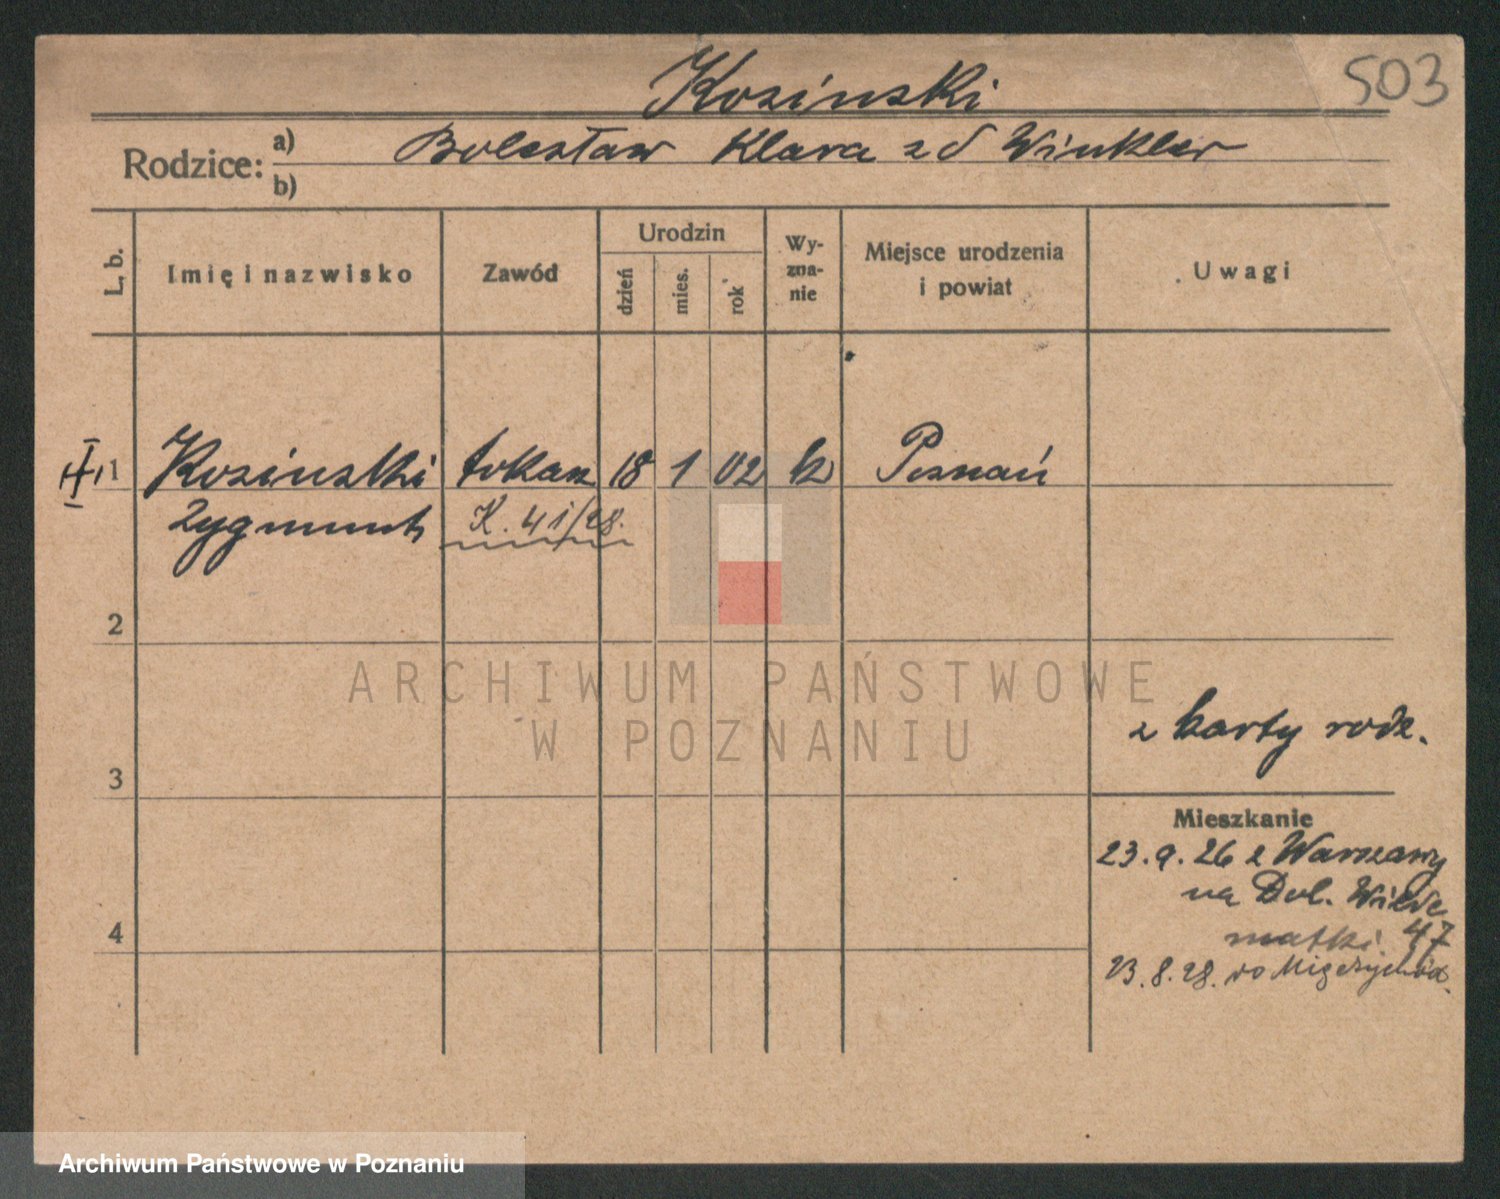 Kosinski
503
Rodzice: a) Bolesław Klara zd Winkler
b)
L. b.
Imię i nazwisko
Zawód
Urodzin
dzień
mies.
rok
Wy-
zna-
nie
Miejsce urodzenia
i powiat
Uwagi
1 Kosinski tokarz 18 1 02 k Poznań
Zygmunt K. 41/28.
2
ARCHIWUM PAŃSTWOWE
W POZNANIU
z karty rodz.
3
Mieszkanie
23.9.26 z Warszawy
na Dol. Wilde
4
matki. 47
23.8.28. do Międzychód.
Archiwum Państwowe w Poznaniu